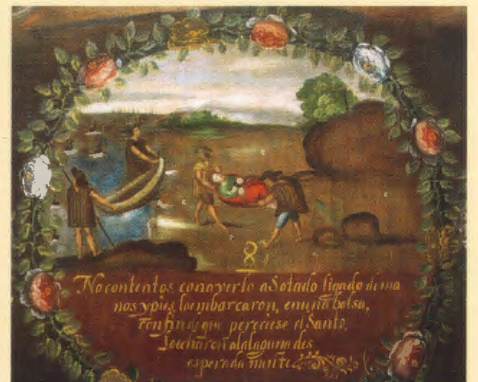 8
No contentos conayerlo aSotado ligado dema
nos ypies loembarcaron, enuna balsa,
confin de que pereciese el Santo,
loecharon alalaguna des
esperada mente